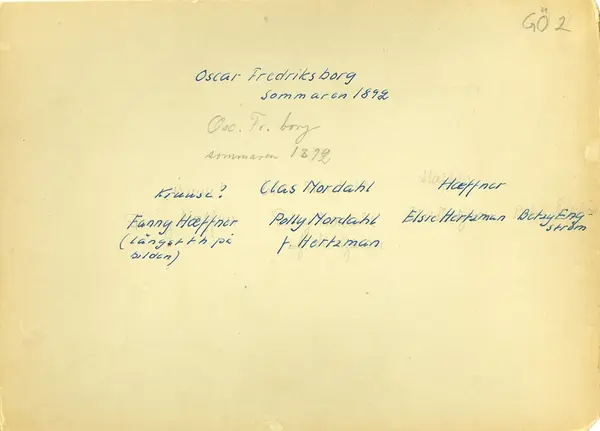 GÖ 2
Oscar Fredriksborg
sommaren 1892
Osc. Fr. borg
sommaren 1892
Krause? Clas Nordahl Hæffner
Fanny Hæffner Polly Nordahl Elsie Hertzman Betzy Eng-
(längst th på f. Hertzman ström
bilden)